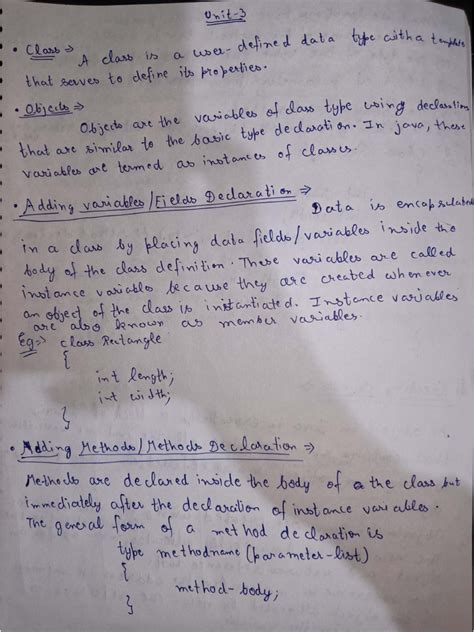 Unit-3
• Class ⇒
A class is a user-defined data type with a template
that serves to define its properties.
• Objects ⇒
Objects are the variables of class type using declaration
that are similar to the basic type declaration. In java, these
variables are termed as instances of classes.
• Adding variables/Fields Declaration ⇒
Data is encapsulated
in a class by placing data fields/variables inside the
body of the class definition. These variables are called
instance variables because they are created whenever
an object of the class is instantiated. Instance variables
are also known as member variables.
Eg:⇒ class Rectangle
{
int length;
int width;
}
• Adding Methods/Methods Declaration ⇒
Methods are declared inside the body of the class but
immediately after the declaration of instance variables.
The general form of a method declaration is
type methodname (parameter-list)
{
method-body;
}